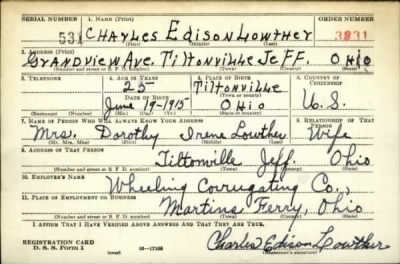 SERIAL NUMBER 1. NAME (Print) ORDER NUMBER
531 CHARLES EDISON LOWTHER 3831
(First) (Middle) (Last)
2. ADDRESS (Print)
GRANDVIEW AVE. TILTONVILLE JEFF. OHIO
(Number and street or R. F. D. number) (Town) (County) (State)
3. TELEPHONE 4. AGE IN YEARS 5. PLACE OF BIRTH 6. COUNTRY OF CITIZENSHIP
25 Tiltonville
DATE OF BIRTH (Town or county)
June 19-1915 Ohio U.S.
(Exchange) (Number) (Mo.) (Day) (Yr.) (State or country)
7. NAME OF PERSON WHO WILL ALWAYS KNOW YOUR ADDRESS 8. RELATIONSHIP OF THAT PERSON
Mrs. Dorothy Irene Lowther Wife
(Mr., Mrs., Miss) (First) (Middle) (Last)
9. ADDRESS OF THAT PERSON
Tiltonville Jeff. Ohio
(Number and street or R. F. D. number) (Town) (County) (State)
10. EMPLOYER'S NAME
Wheeling Corrugating Co.,
11. PLACE OF EMPLOYMENT OR BUSINESS
Martins Ferry, Ohio
(Number and street or R. F. D. number) (Town) (County) (State)
I AFFIRM THAT I HAVE VERIFIED ABOVE ANSWERS AND THAT THEY ARE TRUE.
REGISTRATION CARD
D. S. S. Form 1 16-17105 Charles Edison Lowther
(over) (Registrant's signature)